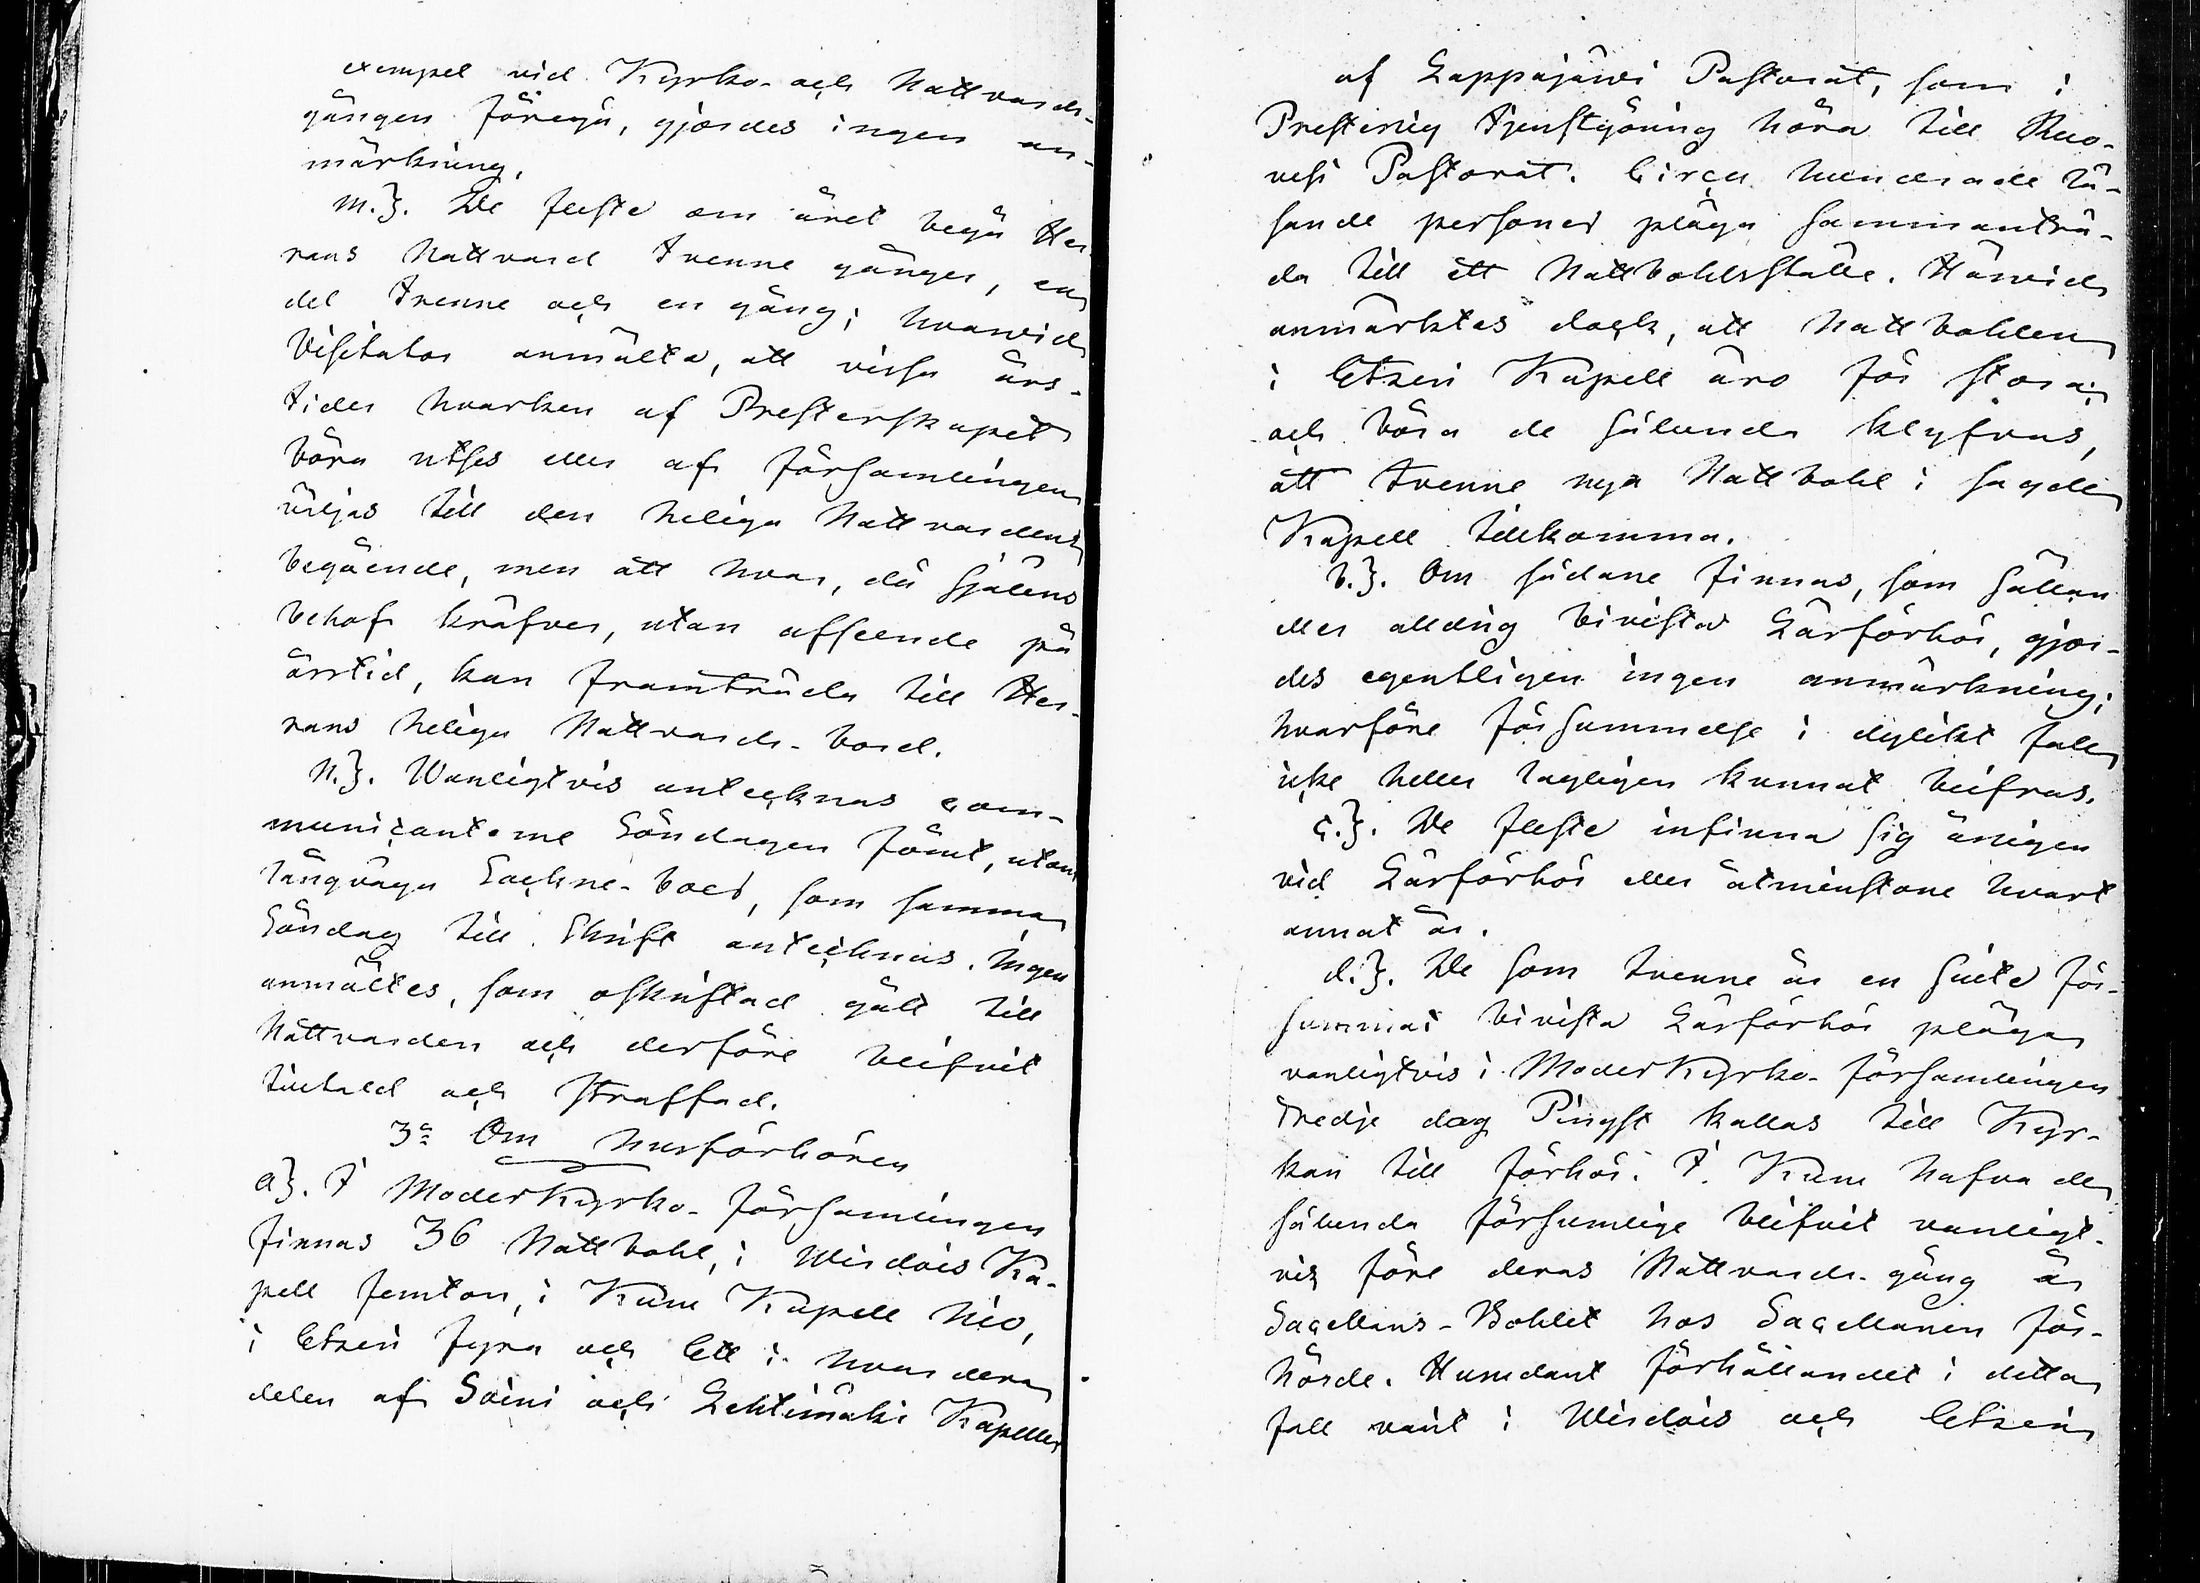 exempel vid Kyrko- och Nattvards-
gången föregå, gjordes ingen an-
märkning.
m.}. De fleste om året begå Her
rans Nattvard tvenne gånger, en
del trenne och en gång; hvarvid
Visitator anmälte, att vissa års-
tider hvarken af Presterskapet
böra utses eller af församlingen
väljas till den heliga Nattvardens
begående, men att hvar, då själens
behof kräfver, utan afseende på
årstid, kan framträda till Her-
rans heliga Nattvards-bord.
n.}. Wanligtvis antecknas com-
municanterne Söndagen förut, utom
långväga Sockne-boer, som samma
Söndag till Skrift antecknas. Ingen
anmältes, som oskriftad gått till
Nattvarden och derföre blifvit
tilltald och straffad.
3º Om Husförhören
a}. I ModerKyrko-församlingen
finnas 36 Nattbohl, i Wirdois Ka-
pell femton, i Kuru Kapell Nio,
i Etseri fyra och Ett i hvardera
delen af Soini och Lehtimäki Kapeller
af Lappajärvi Pastorat, som i
Presterlig tjenstgöring höra till Ruo-
vesi Pastorat. Circa hundrade tju-
sande personer pläga sammanträ-
da till ett Nattbohlsställe. Härvid
anmärktes dock, att Nattbohlen
i Etseri Kapell äro för stora;
och böra de sålunda klyfvas,
att tvenne nya Nattbohl i sagde
Kapell tillkomma.
b.}. Om sådane finnas, som sällan
eller alldrig bivista Läsförhör, gjor-
des egentligen ingen anmärkning;
hvarföre försummelse i dylikt fall
icke heller lagligen kunnat beifras.
c.}. De fleste infinna sig årligen
vid Läsförhör eller åtminstone hvart
annat år.
d.}. De som tvenne år en suite för-
summat bivista Läsförhör pläga
vanligtvis i ModerKyrko-församlingen
tredje dag Pingst kallas till Kyr-
kan till förhör. I Kuru hafva de
sålunda försumlige blifvit vanligt-
vis före deras Nattvards-gång å
Sacellans-Bohlet hos Sacellanen för-
hörde. Hurudant förhållandet i detta
fall varit i Wirdois och Etseri